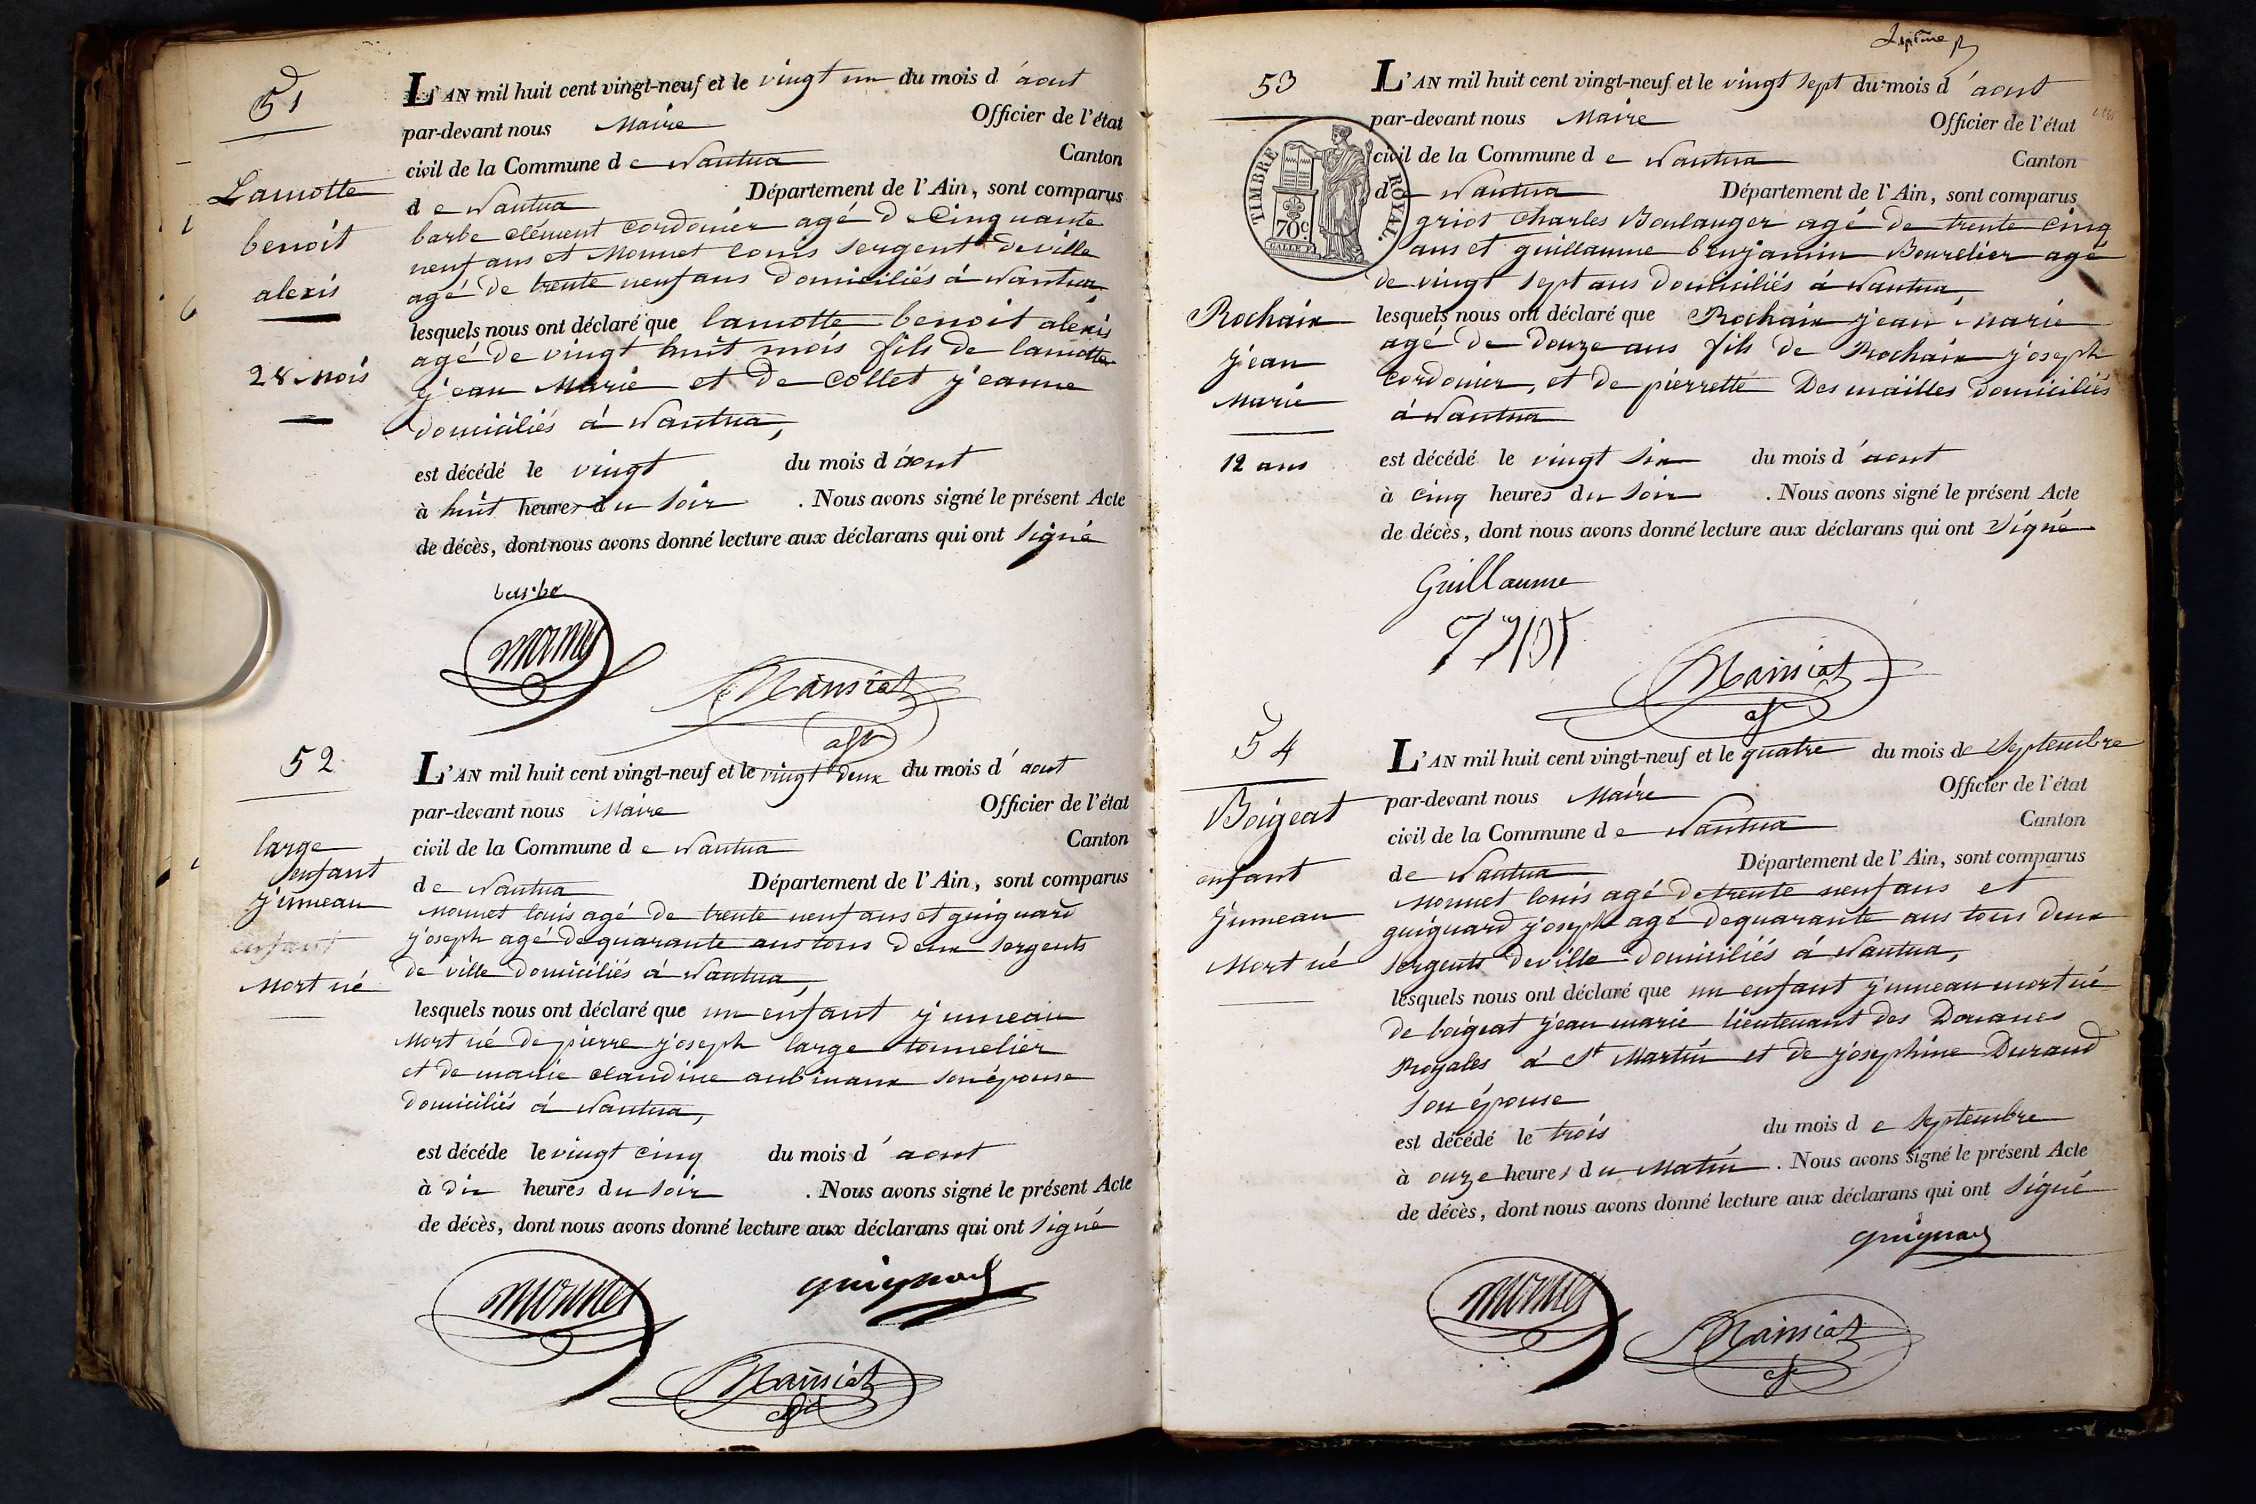 51
Lamotte
benoit
alexis
28 mois
L'AN mil huit cent vingt-neuf et le vingt un du mois d'aout
par-devant nous Maire Officier de l'état
civil de la Commune de Nantua Canton
de Nantua Département de l'Ain, sont comparus
barbe clément cordonier agé de Cinquante
neuf ans et Monnet louis sergent deville
agé de trente neuf ans domiciliés á Nantua,
lesquels nous ont déclaré que lamotte benoit alexis
agé de vingt huit mois fils de lamotte
jean Marie et de collet jeanne
domiciliés á Nantua,
est décédé le vingt du mois d'aout
à huit heures du soir . Nous avons signé le présent Acte
de décès, dont nous avons donné lecture aux déclarans qui ont signé
barbe
monnet
Mainsiat
52
large
enfant
jumeau
enfant
Mort né
L'AN mil huit cent vingt-neuf et le vingt deux du mois d'aout
par-devant nous Maire Officier de l'état
civil de la Commune de Nantua Canton
de Nantua Département de l'Ain, sont comparus
Monnet louis agé de trente neuf ans et guignard
joseph agé de quarante ans tous deux sergents
de ville domiciliés á Nantua,
lesquels nous ont déclaré que un enfant jumeau
Mort né de pierre joseph large tonnelier
et de marie claudine aubinaux son épouse
domiciliés á Nantua,
est décéde le vingt cinq du mois d'aout
à dix heures du soir . Nous avons signé le présent Acte
de décès, dont nous avons donné lecture aux déclarans qui ont signé
monnet
guignard
Mainsiat
53
TIMBRE ROYAL.
70c
Rochaix
jean
Marie
12 ans
L'AN mil huit cent vingt-neuf et le vingt sept du mois d'aout
par-devant nous Maire Officier de l'état
civil de la Commune de Nantua Canton
de Nantua Département de l'Ain, sont comparus
griot charles Boulanger agé de trente cinq
ans et guillaume benjamin Bourelier agé
de vingt sept ans domiciliés á Nantua,
lesquels nous ont déclaré que Rochaix jean Marie
agé de douze ans fils de Rochaix joseph
cordonier, et de pierrette Desmailles domiciliés
á Nantua
est décédé le vingt six du mois d'aout
à cinq heures du soir . Nous avons signé le présent Acte
de décès, dont nous avons donné lecture aux déclarans qui ont signé
Guillaume
griot
Mainsiat
54
Boigeat
enfant
jumeau
Mort né
L'AN mil huit cent vingt-neuf et le quatre du mois de Septembre
par-devant nous Maire Officier de l'état
civil de la Commune de Nantua Canton
de Nantua Département de l'Ain, sont comparus
Monnet louis agé de trente neuf ans et
guignard joseph agé de quarante ans tous deux
sergents deville domiciliés á Nantua,
lesquels nous ont déclaré que un enfant jumeau mort né
de boigeat jean marie lieutenant des Douanes
Royales á St Martin et de josephine Durand
son épouse
est décédé le trois du mois de Septembre
à onze heures du Matin . Nous avons signé le présent Acte
de décès, dont nous avons donné lecture aux déclarans qui ont signé
guignard
monnet
Mainsiat